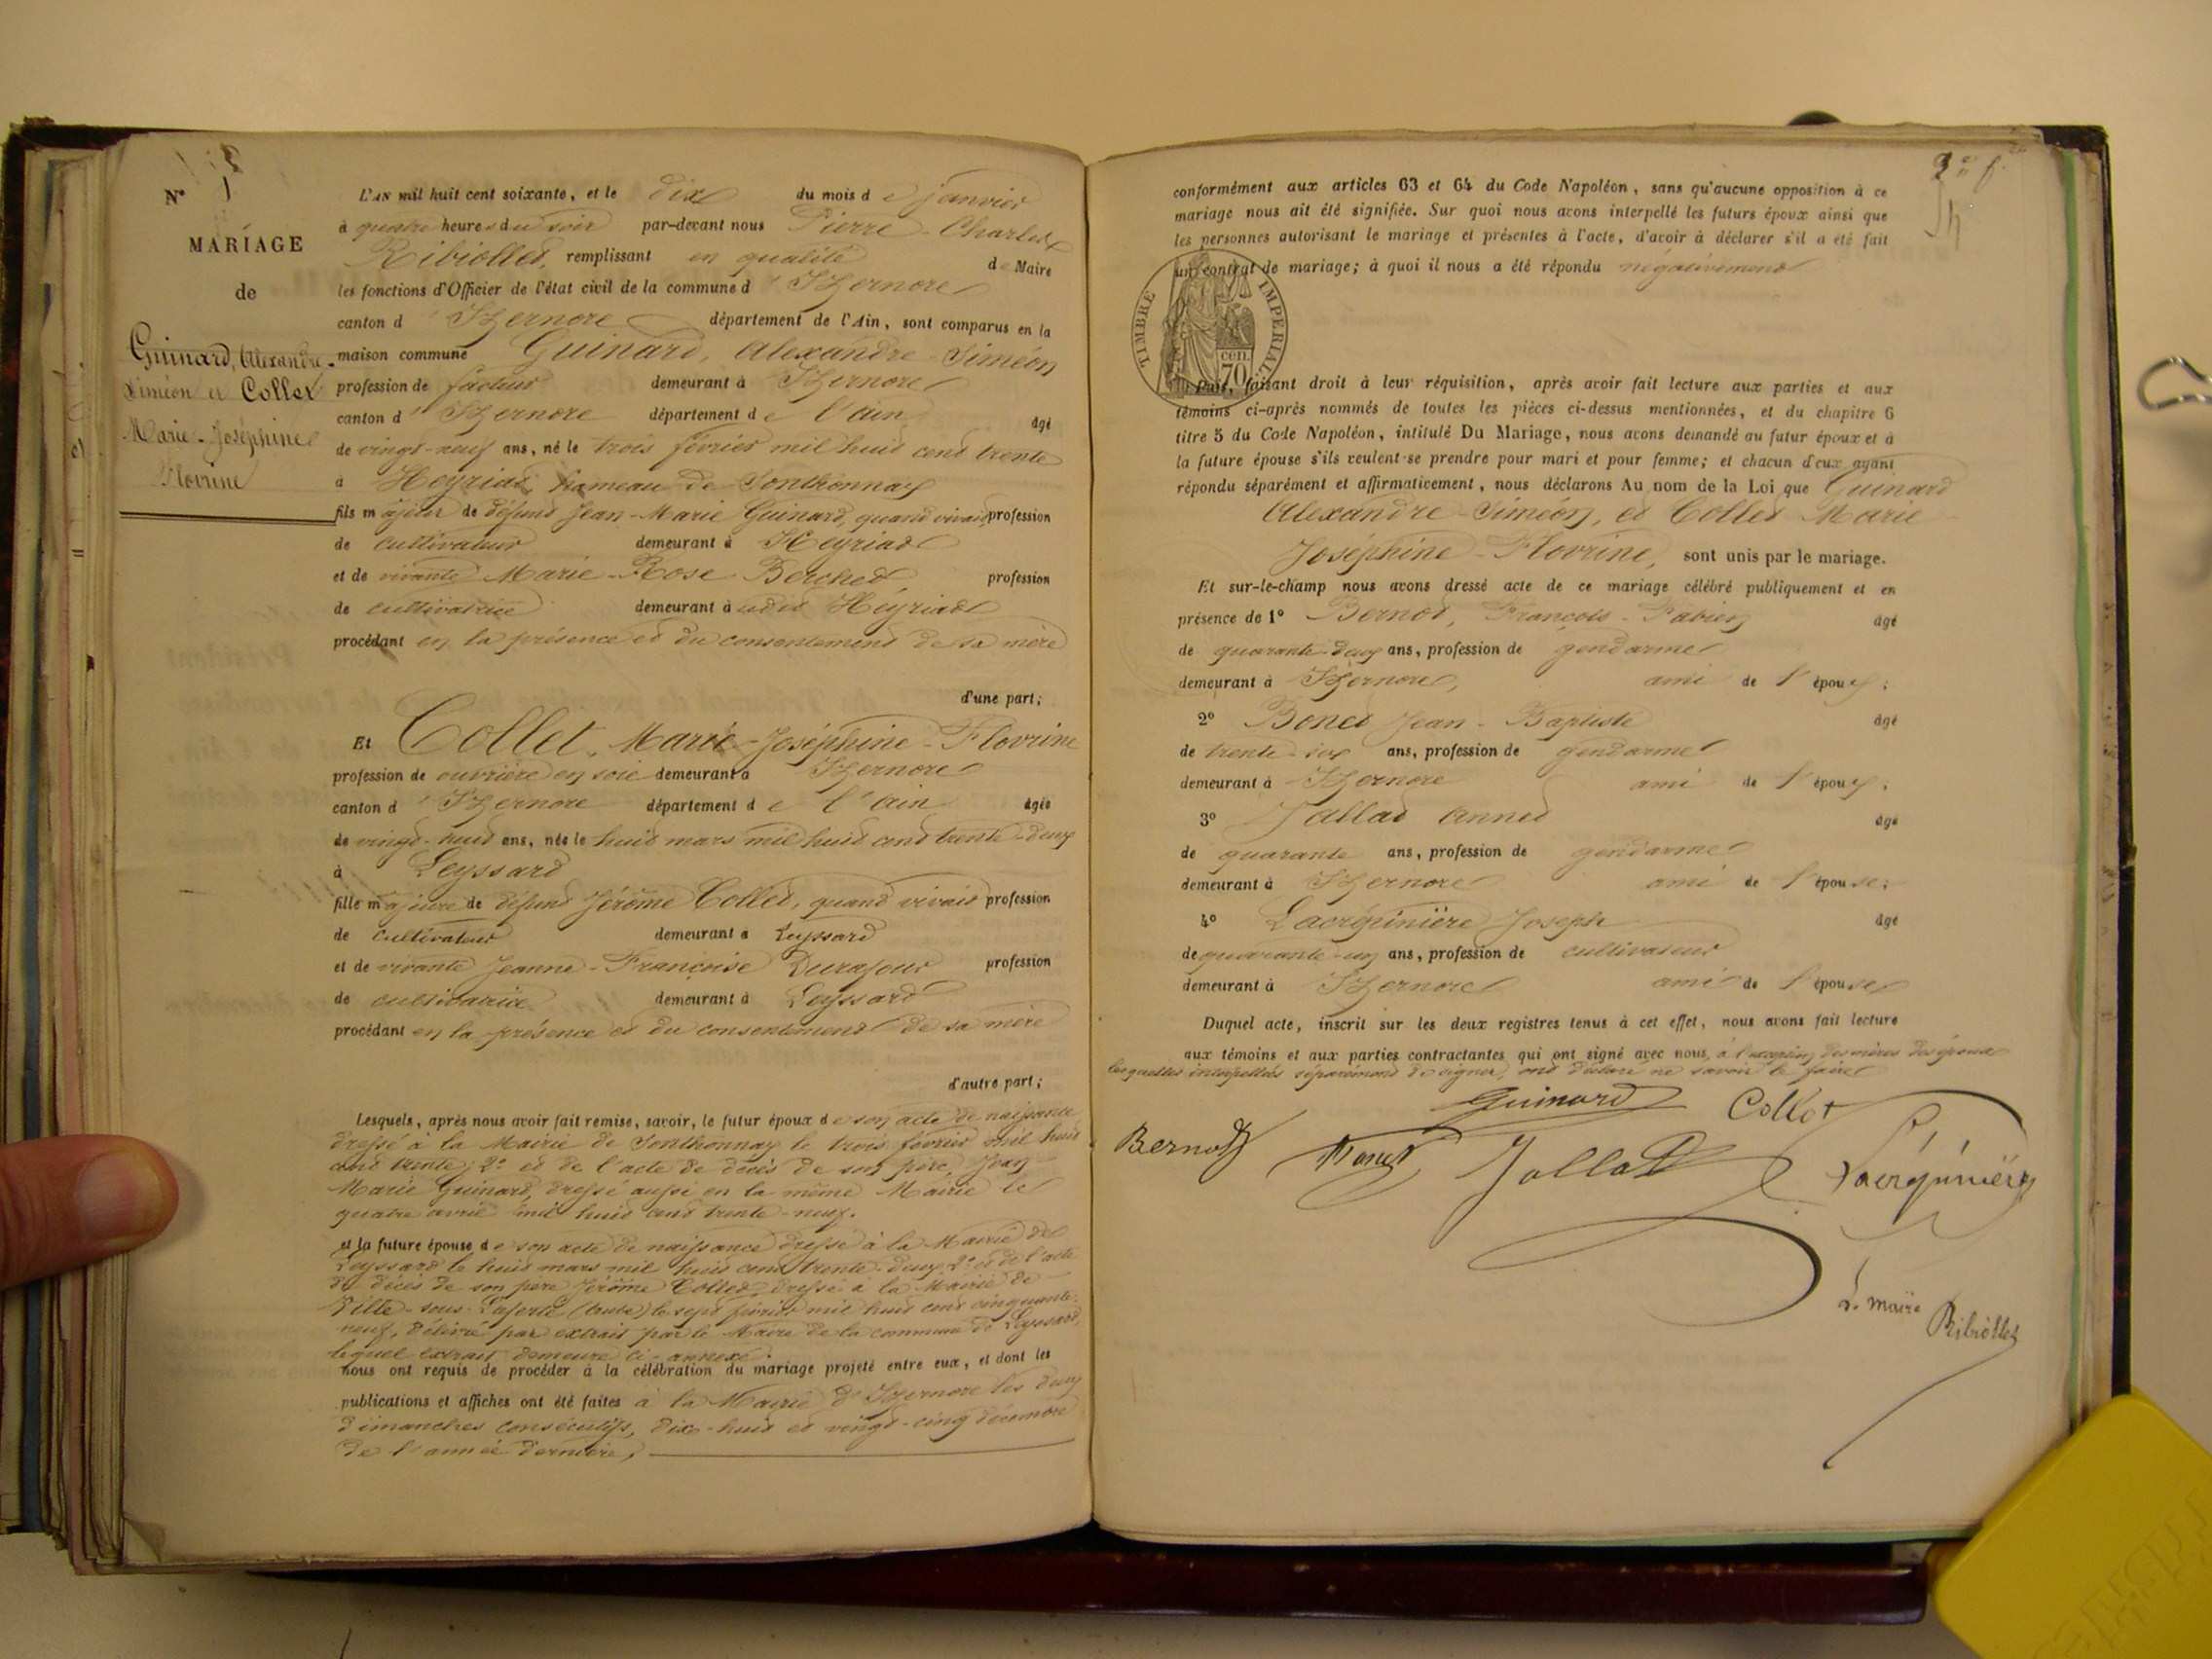 N° 1
MARIAGE
de
Guinard, Alexandre-
Siméon et Collet
Marie-Joséphine
Florine
L'AN mil huit cent soixante, et le dix du mois de janvier
à quatre heures du soir par-devant nous Pierre-Charles
Ribiollet, remplissant en qualité de Maire
les fonctions d'Officier de l'état civil de la commune d'Izernore
canton d'Izernore département de l'Ain, sont comparus en la
maison commune Guinard, Alexandre-Siméon
profession de facteur demeurant à Izernore
canton d'Izernore département de l'Ain âgé
de vingt-neuf ans, né le trois février mil huit cent trente
à Heyriat, hameau de Sonthonnay
fils majeur de défunt Jean-Marie Guinard, quand vivait profession
de cultivateur demeurant à Heyriat
et de vivante Marie-Rose Berchet profession
de cultivatrice demeurant à udit Héyriat
procédant en la présence et du consentement de sa mère
d'une part;
Et Collet, Marie-Joséphine-Florine
profession de ouvrière en soie demeurant à Izernore
canton d'Izernore département de l'Ain âgée
de vingt-huit ans, née le huit mars mil huit cent trente-deux
à Leyssard
fille majeure de défunt Jérôme Collet, quand vivait profession
de cultivateur demeurant à Leyssard
et de vivante Jeanne-Françoise Durafour profession
de cultivatrice demeurant à Leyssard
procédant en la présence et du consentement de sa mère
d'autre part;
Lesquels, après nous avoir fait remise, savoir, le futur époux de son acte de naissance
dressé à la Mairie de Sonthonnay le trois février mil huit
cent trente; 2° et de l'acte de décès de son père, Jean
Marie Guinard, dressé aussi en la même Mairie le
quatre avril mil huit cent trente-neuf.
et la future épouse de son acte de naissance dressé à la Mairie de
Leyssard le huit mars mil huit cent trente-deux, 2° et de l'acte
de décès de son père Jérôme Collet, dressé à la Mairie de
Ville-sous-Laferté (Aube) le sept février mil huit cent cinquante-
neuf, délivré par extrait par le Maire de la commune de Leyssard,
lequel extrait demeure ci-annexé.
nous ont requis de procéder à la célébration du mariage projeté entre eux, et dont les
publications et affiches ont été faites à la Mairie d'Izernore les deux
dimanches consécutifs, dix-huit et vingt-cinq décembre
de l'année dernière,
2e f.
conformément aux articles 63 et 64 du Code Napoléon, sans qu'aucune opposition à ce
mariage nous ait été signifiée. Sur quoi nous avons interpellé les futurs époux ainsi que
les personnes autorisant le mariage et présentes à l'acte, d'avoir à déclarer s'il a été fait
un contrat de mariage; à quoi il nous a été répondu négativement
TIMBRE IMPERIAL
70 cen.
Puis, faisant droit à leur réquisition, après avoir fait lecture aux parties et aux
témoins ci-après nommés de toutes les pièces ci-dessus mentionnées, et du chapitre 6
titre 5 du Code Napoléon, intitulé Du Mariage, nous avons demandé au futur époux et à
la future épouse s'ils veulent se prendre pour mari et pour femme; et chacun d'eux ayant
répondu séparément et affirmativement, nous déclarons Au nom de la Loi que Guinard
Alexandre-Siméon, et Collet Marie
Joséphine-Florine, sont unis par le mariage.
Et sur-le-champ nous avons dressé acte de ce mariage célébré publiquement et en
présence de 1° Bernot, François-Fabien âgé
de quarante-deux ans, profession de gendarme
demeurant à Izernore, ami de l'époux;
2° Bonet Jean-Baptiste âgé
de trente-six ans, profession de gendarme
demeurant à Izernore ami de l'époux;
3° Jallat Annet âgé
de quarante ans, profession de gendarme
demeurant à Izernore ami de l'épouse;
4° Lacrépinière Joseph âgé
de quarante-un ans, profession de cultivateur
demeurant à Izernore ami de l'épouse
Duquel acte, inscrit sur les deux registres tenus à cet effet, nous avons fait lecture
aux témoins et aux parties contractantes qui ont signé avec nous, à l'exception des mères des époux
lesquelles interpellées séparément de signer, ont déclaré ne savoir le faire
Guinard Collet
Bernot Bonet Jallat Lacrépinière
Le maire Ribiollet